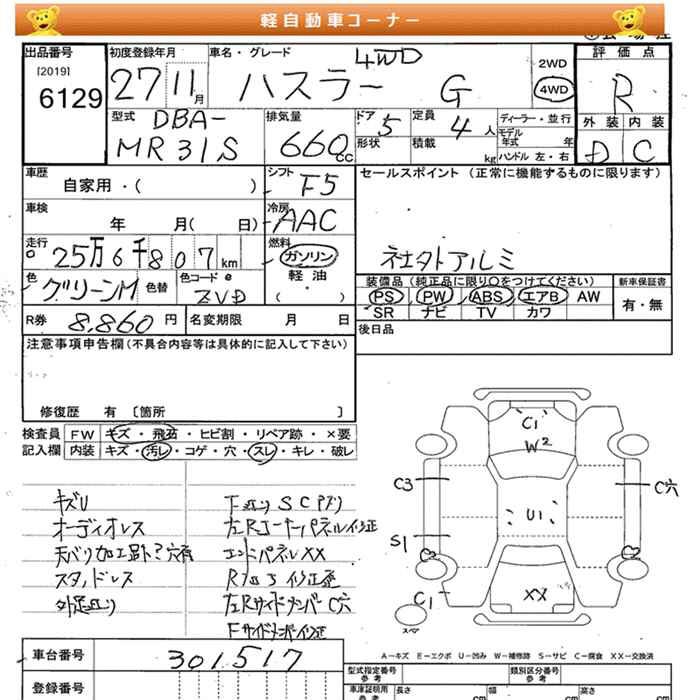 軽自動車コーナー
出品番号 初度登録年月 車名・グレード 4WD 2WD 評価点
[2019] 6129 27 11月 ハスラー G 4WD R
型式 DBA-MR31S 排気量 660cc ドア 5 定員 4人 ディーラー・並行 外装 内装
形状 積載 kg モデル年式 年 ハンドル 左・右 D C
車歴 自家用・( ) シフト F5 セールスポイント (正常に機能するものに限ります)
車検 年 月( 日) 冷房 AAC
走行 25万6千807km 燃料 ガソリン 軽油 ( ・ ) 社外アルミ
色 グリーンM 色替 色コード ZVD 装備品 (純正品に限り○をつけてください) 新車保証書
PS PW ABS エアB AW 有・無
SR ナビ TV カワ
R券 8,860円 名変期限 月 日 後日品
注意事項申告欄 (不具合内容等は具体的に記入して下さい)
修復歴 有 [箇所 ]
検査員 FW キズ・飛石・ヒビ割・リペア跡・×要
記入欄 内装 キズ・汚レ・コゲ・穴・スレ・キレ・破レ
キズU
オーディオレス
スタッドレス
エンドパネルXX
左Rサイドメンバー C穴
Fサイドメンバー修正
C1
W2
C3
C穴
U1
S1
C2
C2
C1
XX
スペア
A-キズ E-エクボ U-凹み W-補修跡 S-サビ C-腐食 XX-交換済
車台番号 301517 型式指定番号 参考 類別区分番号 参考
登録番号 車庫証明用 参考 長さ cm 幅 cm 高さ cm